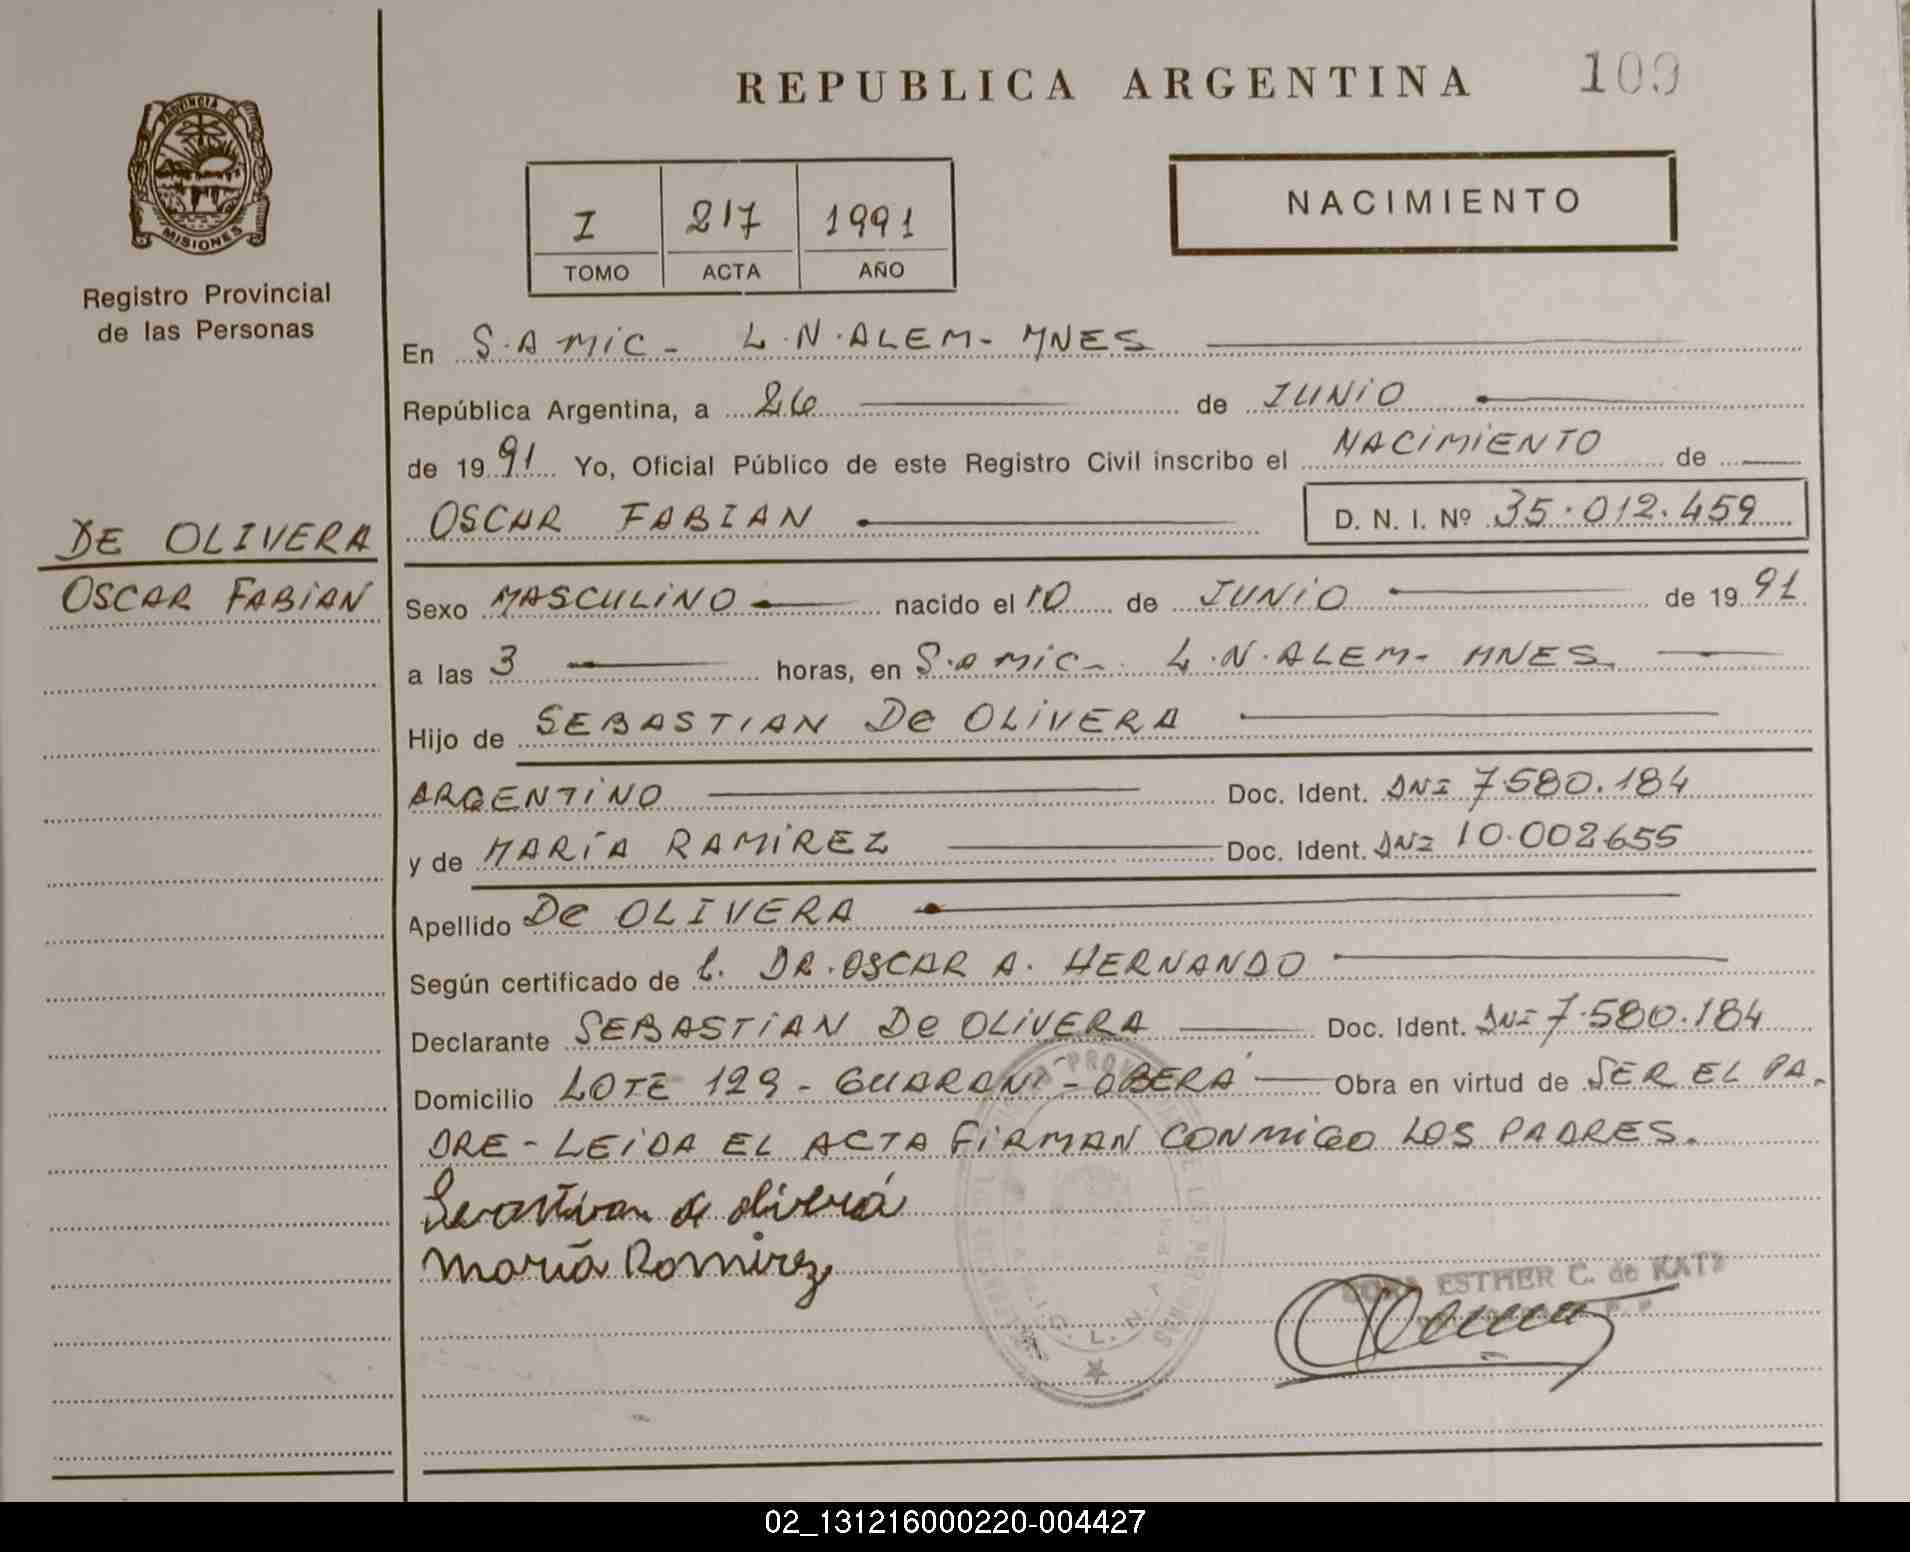 REPUBLICA ARGENTINA 109
PROVINCIA DE
MISIONES
Registro Provincial
de las Personas
I 217 1991
TOMO ACTA AÑO
NACIMIENTO
En S.A MIC - L.N.ALEM - MNES
República Argentina, a 26 de JUNIO
de 1991 Yo, Oficial Público de este Registro Civil inscribo el NACIMIENTO de
OSCAR FABIAN D. N. I. Nº 35.012.459
DE OLIVERA
OSCAR FABIAN
Sexo MASCULINO nacido el 10 de JUNIO de 1991
a las 3 horas, en S.A MIC - L.N.ALEM - MNES.
Hijo de SEBASTIAN De OLIVERA
ARGENTINO Doc. Ident. DNI 7.580.184
y de MARÍA RAMIREZ Doc. Ident. DNI 10.002655
Apellido De OLIVERA
Según certificado de L. DR. OSCAR A. HERNANDO
Declarante SEBASTIAN De OLIVERA Doc. Ident. DNI 7.580.184
Domicilio LOTE 129 - GUARANI - OBERÁ Obra en virtud de SER EL PA-
DRE - LEIDA EL ACTA FIRMAN CONMIGO LOS PADRES.
Sevastivan de oliverá
Maria Romirez
ESTHER C. de KATZ
02_131216000220-004427